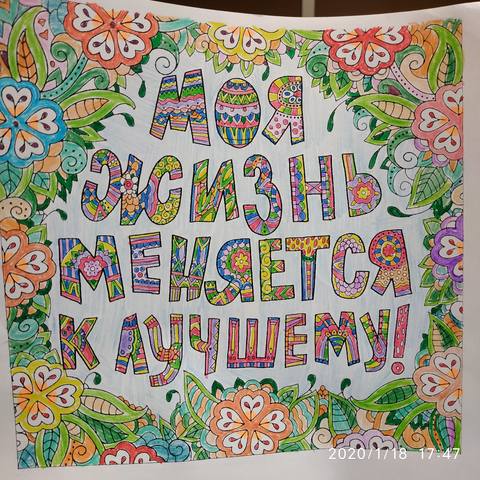 МОЯ
ЖИЗНЬ
МЕНЯЕТСЯ
К ЛУЧШЕМУ!
2020/1/18 17:47